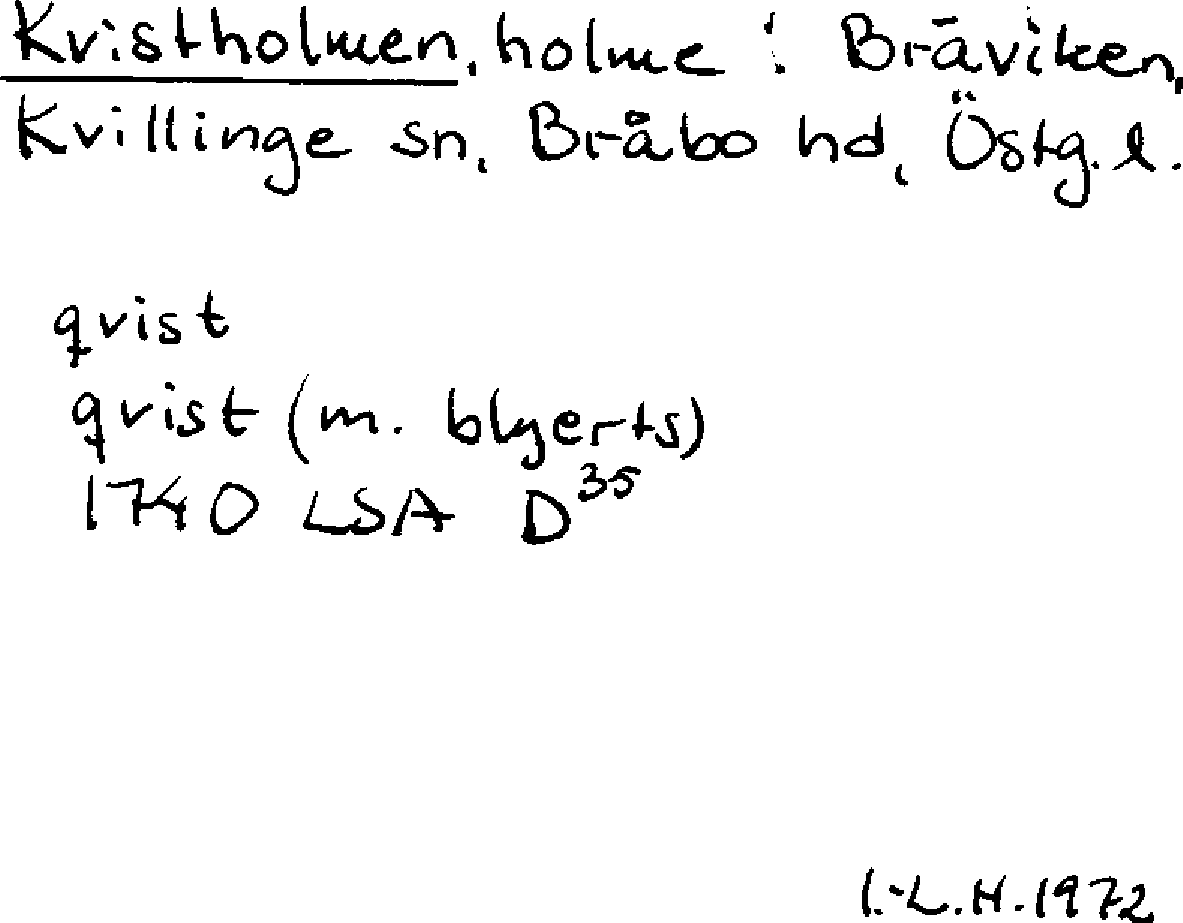 Kvistholmen, holme i Bråviken,
Kvillinge sn, Bråbo hd, Östg.l.
qvist
qvist (m. blyerts)
1740 LSA D³⁵
I.-L.H.1972